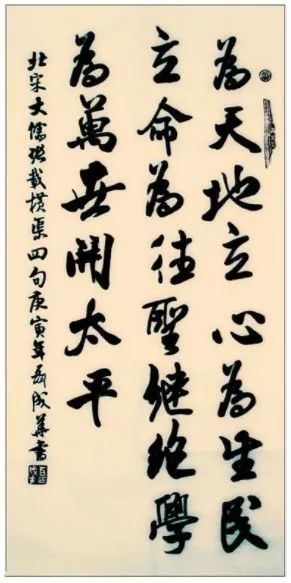 為天地立心為生民
立命為往聖繼絕學
為萬世開太平
北宋大儒張載橫渠四句庚寅年成華書